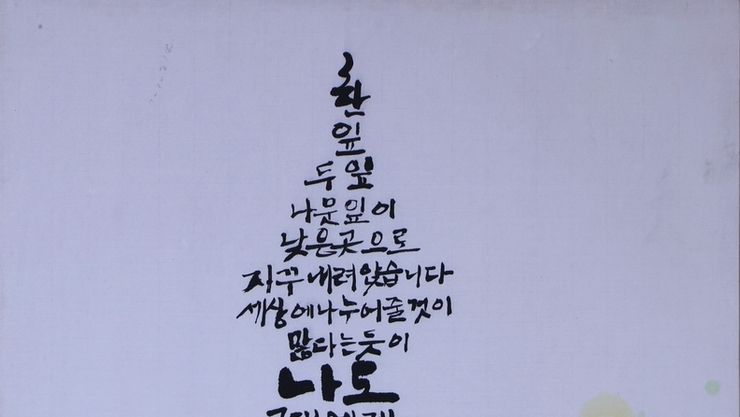 한
잎
두 잎
나뭇잎이
낮은 곳으로
자꾸 내려앉습니다
세상에 나누어줄 것이
많다는 듯이
나도